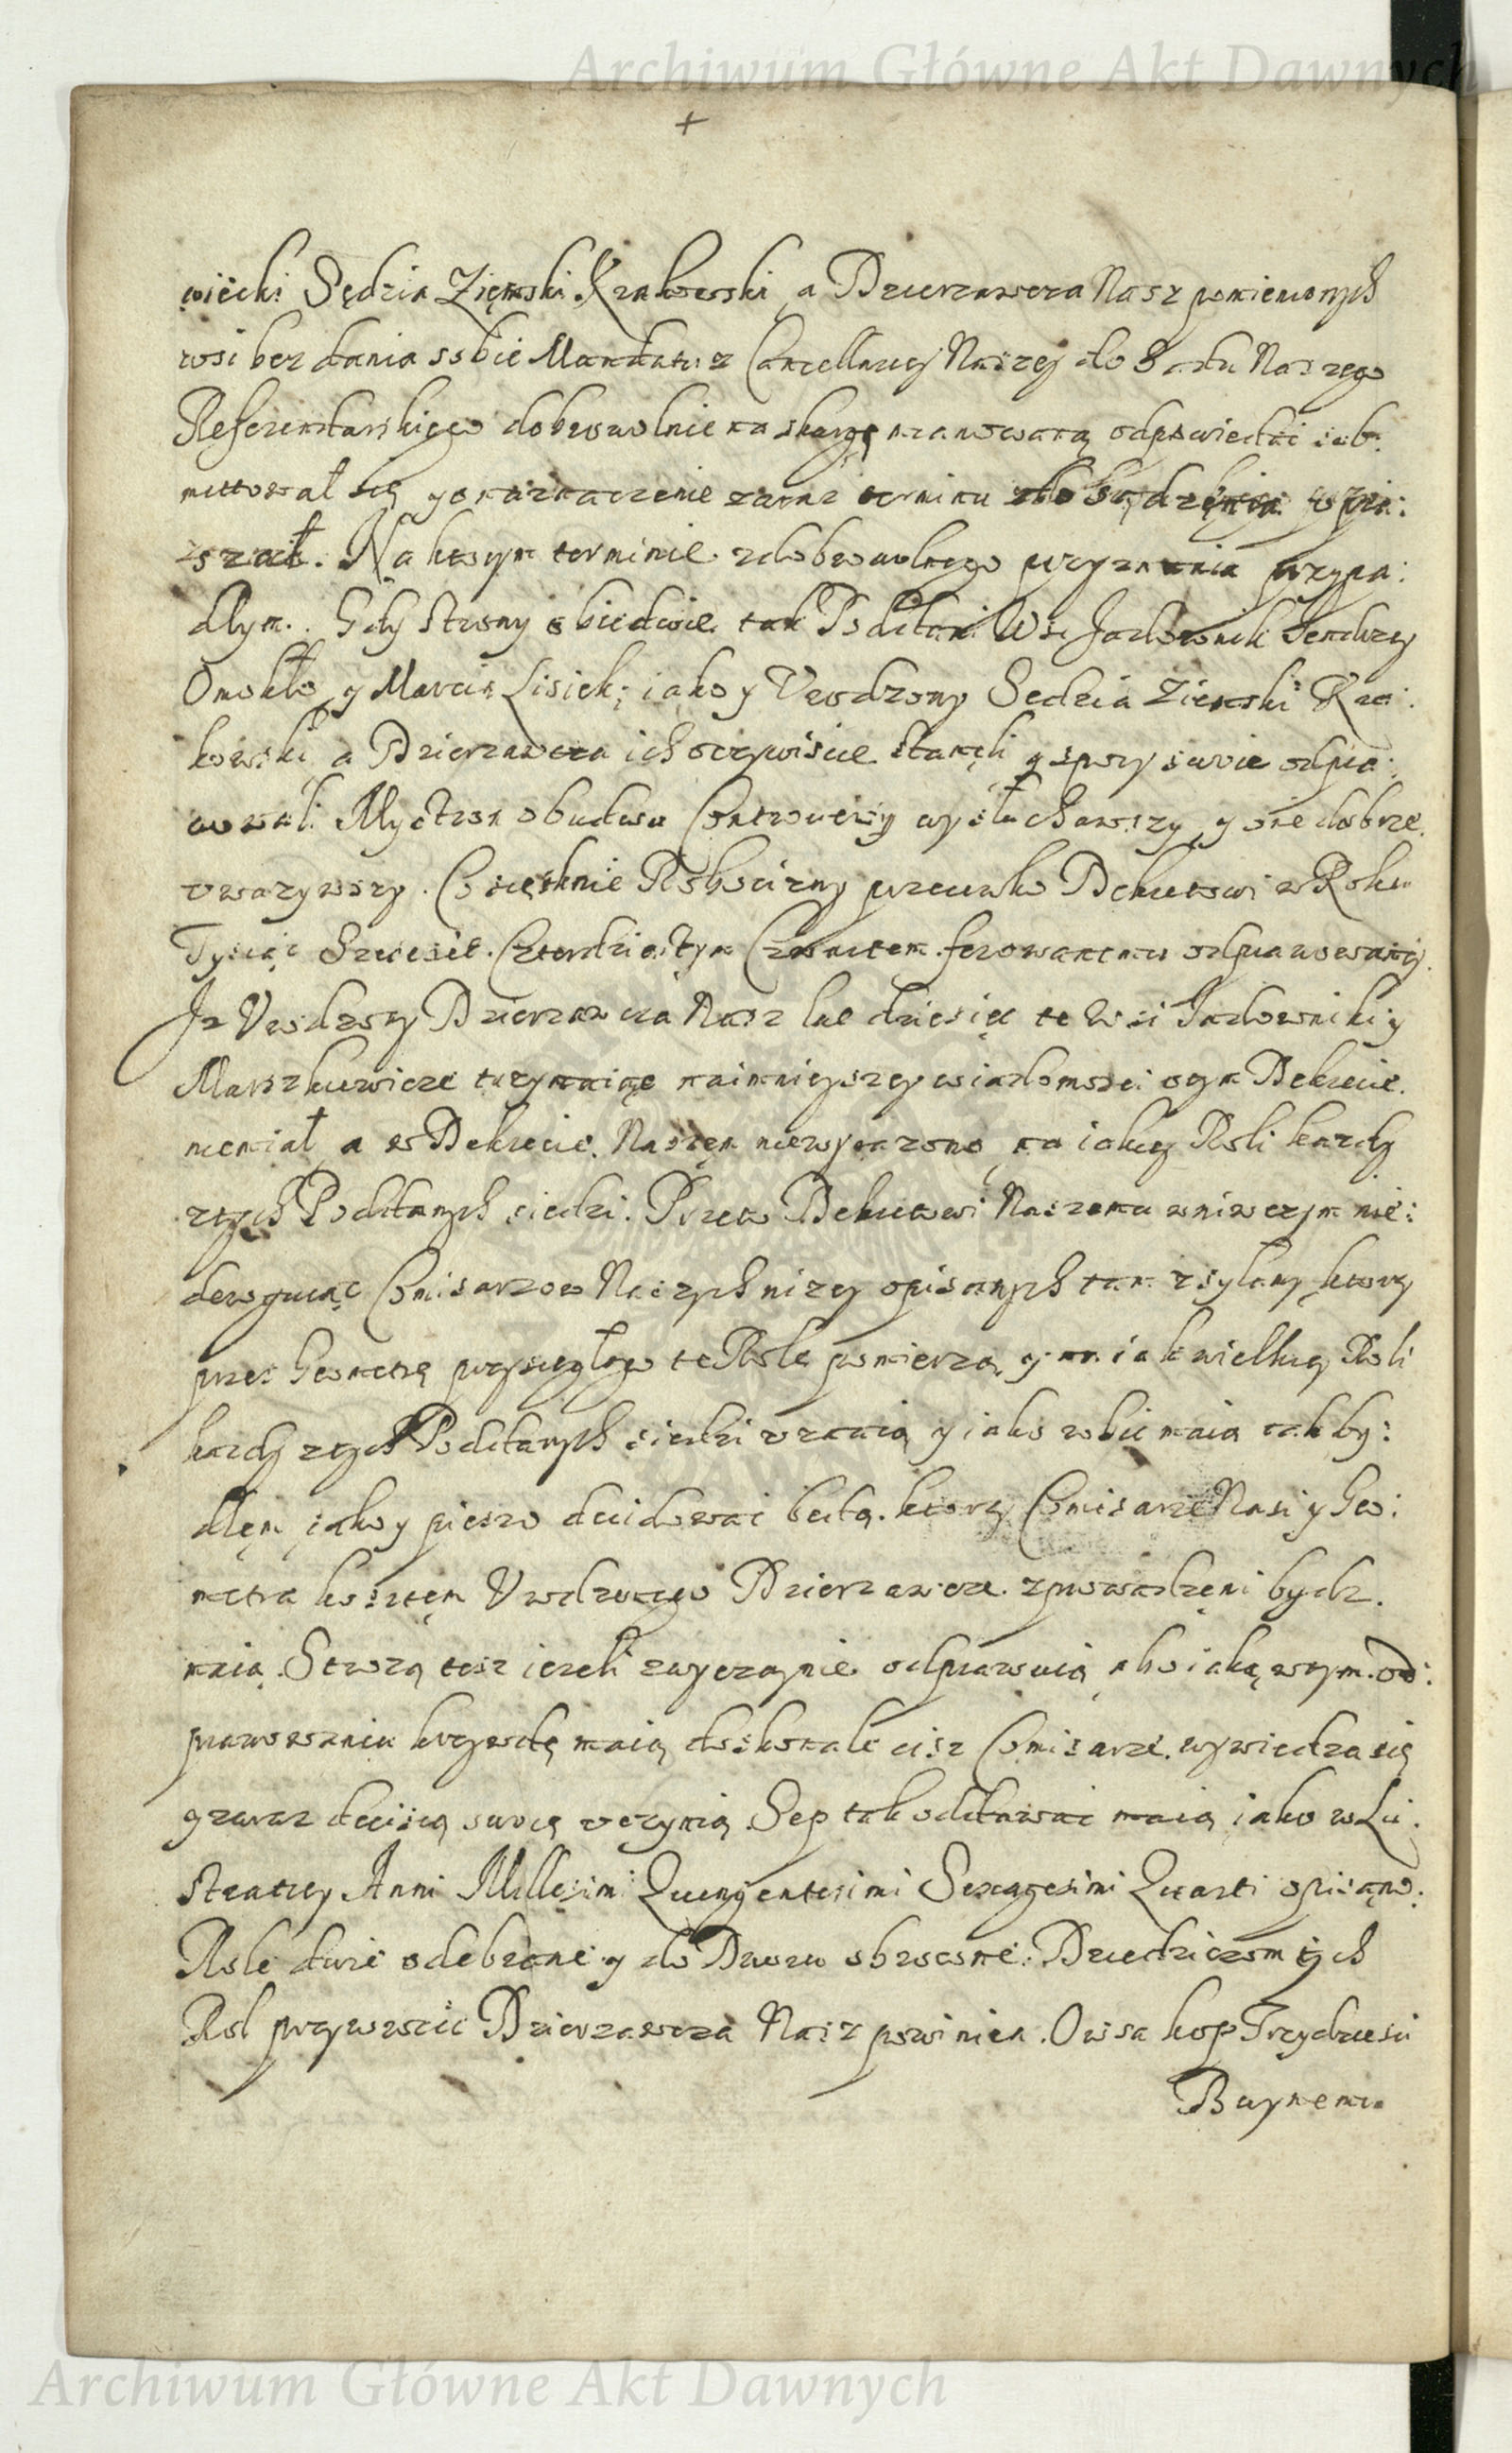 Archiwum Główne Akt Dawnych
+
wiecki Sędzia Zięmski Krakowski a Dzierzawcza Nasz pomienionych
wsi bez dania sobie Mandatu z Cancellariey Naszey do Sądu Naszego
Referendarskiego dobrowolnie na skargę mianowaną odpowiedać sub:
mittował się y o naznaczenie zaraz terminu do Sądzenia
Na ktorym terminie z dobrowolnego przyznania przypa:
dłym. Gdy Strony obiedwie tak Poddani Wsi Jadownik Jendrzey
Omokło y Marcin Lisiek, iako y Urodzony Sędzia Ziemski Kra:
kowski a Dzierzawcza ich oczywiscie stanęli y spory swoie odpra:
wowali My Stron obudwu Controwersiy wysłuchawszy y one dobrze
uwazywszy. Co się tknie Robocizny przeciwko Dekretowi w Roku
Tysiąc Szescset Czterdziestym Czwartem ferowanemu odprawowaney
Jz Urodzony Dzierzawcza Nasz lat dziesięc te Wsi Jadowniki y
Marszkiewicze trzymaiąc naimnieyszey wiadomosci o tym Dekrecie
niemiał a w Dekrecie Naszęm niewyrazono na iakiey Roli kazdy
z tych Poddanych siedzi. Przeto Dekretowi Naszemu wniwczym nie:
deroguiąc Comisarzow Naszych nizey opisanych tam zsyłamy ktorzy
przez Geometrę przysięgłego te Role pomierzą y na iak wielkiey Roli
kazdy z tych Poddanych siedzi uznaią y iako robić maią tak by:
dłęm iako y pieszo decidować będą. ktorzy Comisarze Nasi y Geo:
metra kosztęm Urodzonego Dzierzawce zprowadzęni bydz
maią. Strozą tesz iezeli zwyczaynie odprawuią abo iaką w tym od:
prawowaniu krzywdę maią doskonale cisz Comisarze wywiedzą się
y zaraz decisią swoię uczynią Sep tak oddawać maią iako w Lu:
stratiey Anni Millesimi Quingentesimi Sexagesimi Quarti opisano.
Role dwie odebrane y do Dworu obrocone Dziedziczom tych
Rol przywrocić Dzierzawcza Nasz powinien. Owsa kop Trzydziesci
Archiwum Główne Akt Dawnych